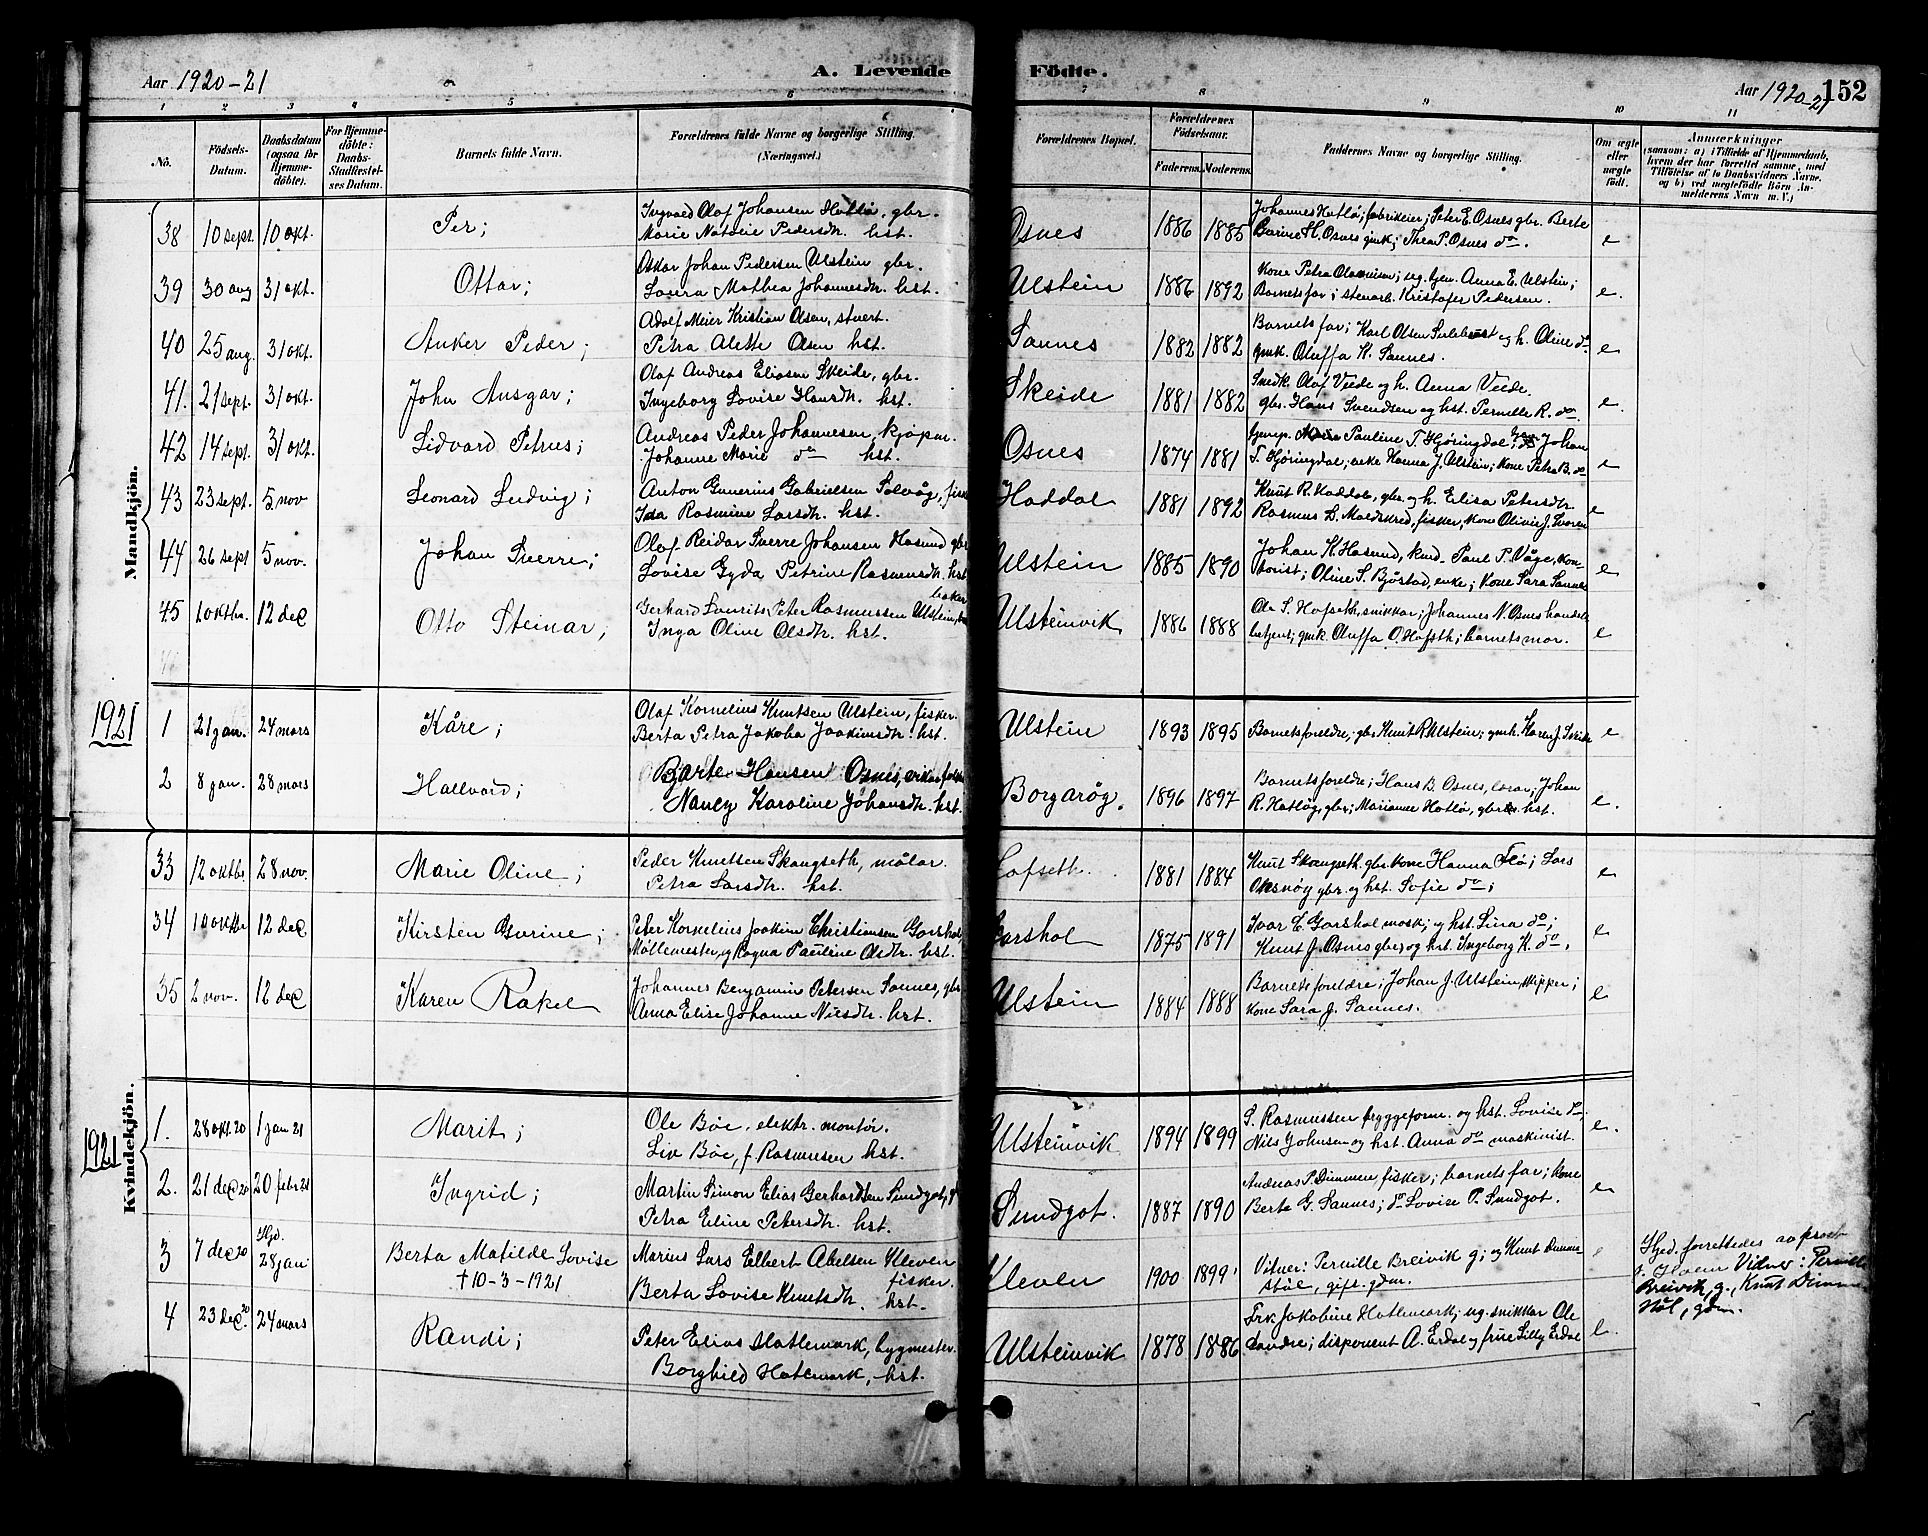 Aar 1920-21
A. Levende Födte.
Aar 1920-21
152
1 2 3 4 5 6 7 8 9 10 11
No.
Födsels-Datum.
Daabsdatum (ogsaa for Hjemmedöbte).
For Hjemmedöbte: Daabs-Stadfæstelses Datum.
Barnets fulde Navn.
Forældrenes fulde Navne og borgerlige Stilling. (Næringsvei.)
Forældrenes Bopæl.
Forældrenes Födselsaar.
Faderens. Moderens.
Faddernes Navne og borgerlige Stilling.
Om ægte eller uægte födt.
Anmærkninger
(saasom: a) i Tilfælde af Hjemmedaab, hvem der har forrettet samme, med Tilföielse af to Daabsvidners Navne, og b) ved uegtefödte Börn Anmelderens Navn m. V.)
Mandkjön.
38 10 sept. 10 okt. Per;
Ingvald Olaf Johansen Hatlö, gbr.
Marie Natalie Pedersdtr. hst.
Osnes 1886 1885
Johannes Hatlö; fabrikeier; Peter E. Osnes gbr. Berte
Barine H. Osnes gmk; Thea P. Osnes do. e
39 30 aug 31 okt. Ottar;
Oskar Johan Pedersen Ulstein gbr.
Laura Mathea Johannesdtr. hst.
Ulstein 1886 1892
Kone Petra Olausen; ug. tjen. Anna E. Ulstein;
Barnets far; stenarb. Kristofer Pedersen. e.
40 25 aug. 31 okt. Anker Peder;
Adolf Meier Kristian Olsen, stuert.
Petra Alette Olsen hst.
Sannes 1882 1882
Barnets far; Karl Olsen Sulebust og h. Oline do
gmk. Oluffa K. Sannes. e
41. 21 sept. 31 okt. John Ansgar;
Olaf Andreas Eliasen Skeide, gbr.
Ingeborg Lovise Hansdtr. hst.
Skeide 1881 1882
Snedk. Olaf Veide og h. Anna Veide.
gbr. Hans Svendsen og hst. Pernille R. do e.
42 14 sept. 31 okt. Sidvard Petrus;
Andreas Peder Johannesen, kjöpm.
Johanne Marie do hst.
Osnes 1874 1881
tjenep. Pauline T. Hjöringdal; Johan
T. Hjöringdal; enke Hanna J. Ulstein; Kone Petra B. do e
43 23 sept. 5 nov Leonard Ludvig;
Anton Gunerius Gabrielsen Solvåg,
Ida Rasmine Larsdtr. hst.
Haddal 1881 1892
Knut R. Haddal, gbr. og h. Elisa Petersdtr.
Rasmus L. Moldskred, fisker, Kone Olivie J. e
44 26 sept 5 nov. Johan Sverre;
Olaf Reidar Sverre Johansen Hasund gbr
Lovise Gyda Petrine Rasmusdtr. hst
Ulstein 1885 1890
Johan K. Hasund, knd. Paul P. Våge, kon-
torist; Oline S. Bjåstad, enke; Kone Sara Sannes e
45 10 oktbr. 12 dec Otto Steinar;
Gerhard Laurits Peter Rasmussen Ulstein, baker
Inga Oline Olsdtr. hst.
Ulsteinvik 1886 1888
Ole S. Hofseth, snikkar; Johannes N. Osnes handels
betjent; gmk. Oluffa O. Hofseth; barnets mor. e
1921
1 21 jan. 24 mars Kåre;
Olaf Kornelius Knutsen Ulstein, fisker.
Berta Petra Jakoba Joakimsdtr. hst.
Ulstein 1893 1895
Barnets foreldre; gbr. Knut R. Ulstein; gmk. Karen J. e
2 8 jan. 28 mars Hallvard;
Bjarte Hansen Osnes,
Nancy Karoline Johansdtr. hst.
Borgarög. 1896 1897
Barnets foreldre; Hans B. Osnes, lærar; Johan
R. Hatlög, gbr.; Marianne Hatlö, hst. e.
Kvindekjön.
33 12 oktbr 28 nov. Marie Oline;
Peder Knutsen Skangseth, målar.
Petra Larsdtr. hst.
Hofseth. 1881 1884
Knut Skangseth, gbr. Kone Hanna Flö; Lars
Oksnög gbr. og hst. Sofie do; e
34 10 oktbr 12 dec Kirsten Gurine;
Peter Kornelius Joakim Christiansen Garshol,
Möllemester, og Ragna Pauline Olsdtr. hst.
Garshol 1875 1891
Ivar E. Garshol mask; og hst. Lina do;
Knut J. Osnes gbr, og hst. Ingeborg K. do, e
35 2 nov. 12 dec Karen Rakel
Johannes Benjamin Petersen Sannes, gbr
Anna Elise Johanne Nilsdtr. hst.
Ulstein 1884 1888
Barnets foreldre; Johan J. Ulstein, skipper;
Kone Sara J. Sannes. e
1921
1. 28 okt. 20 1 jan 21 Marit;
Ole Böe, elektr. montör.
Liv Böe, f. Rasmussen hst.
Ulsteinvik 1894 1899
S. Rasmussen bryggeform. og hst. Lovise do;
Nils Johnsen og hst. Anna do maskinist. e.
2. 21 dec 20 20 febr 21 Ingrid;
Martin Simon Elias Gerhardsen Sundgot,
Petra Eline Petersdtr. hst.
Sundgot. 1887 1890
Andreas P. Dimmen fisker; barnets far; Kone
Berte G. Sannes; do Lovise P. Sundgot. e
3 7 dec 20 Hjd. 28 jan Berta Matilde Lovise
†10-3-1921
Marius Lars Elbert Abelsen Kleven
fisker.
Berta Lovise Knutsdtr. hst.
Kleven 1900 1899
Vitner: Pernille Breivik g; og Knut Dimme
stöl, gift. gdm. e
Hjed. forrettedes av prest
Vidner: Pernille
Breivik, g., Knut Dimme
stöl, gdm.
4 23 dec. 20 24 mars Randi;
Peter Elias Hatlemark, bygmester.
Borghild Hatlemark, hst.
Ulsteinvik 1878 1886
Frk. Jakobine Hatlemark; ug. snikkar Ole
Landre; disponent A. Erdal og frue Lilly Erdal e.